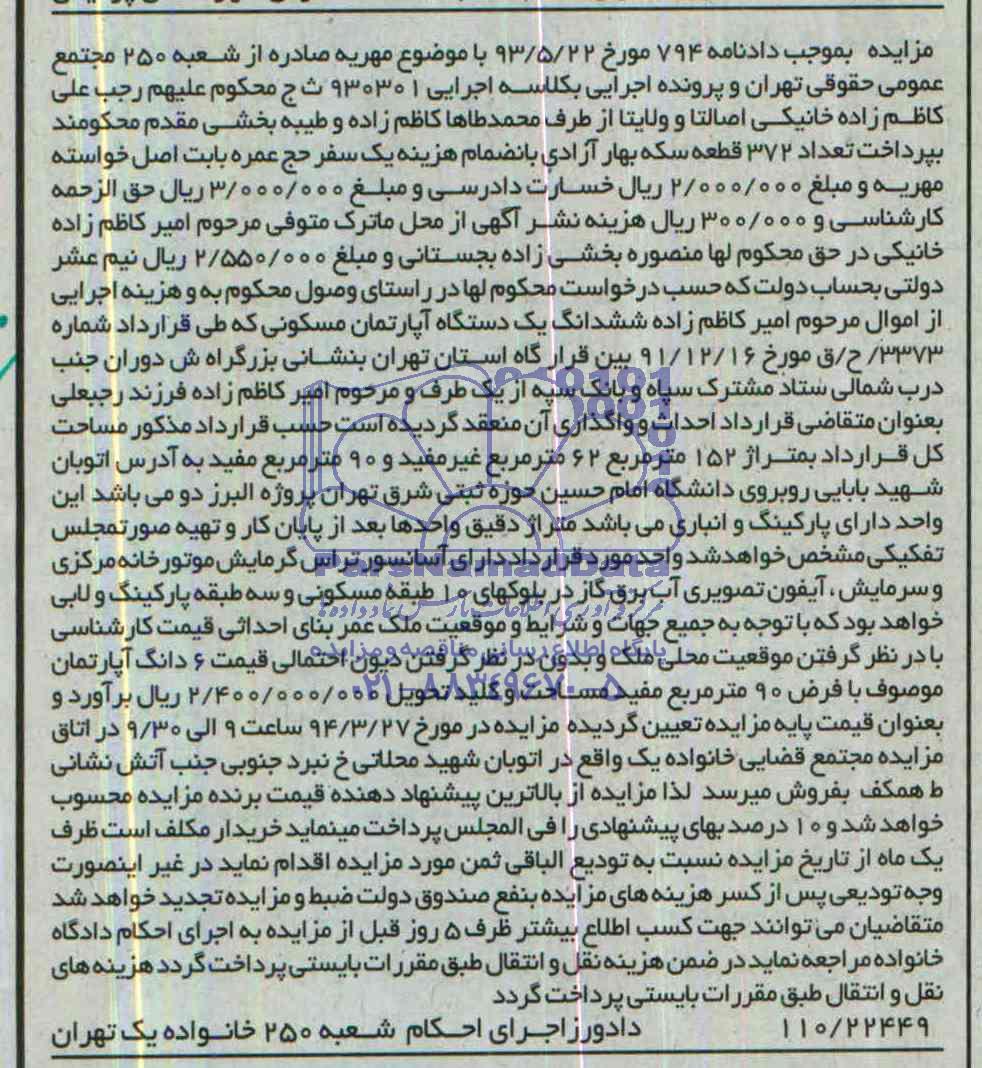 مزایده بموجب دادنامه ۷۹۴ مورخ ۹۳/۵/۲۲ با موضوع مهریه صادره از شعبه ۲۵۰ مجتمع
عمومی حقوقی تهران و پرونده اجرایی بکلاسه اجرایی ۹۳۰۳۰۱ ث ج محکوم علیهم رجب علی
کاظم زاده خانیکی اصالتا و ولایتا از طرف محمدطاها کاظم زاده و طیبه بخشی مقدم محکومند
بپرداخت تعداد ۳۷۲ قطعه سکه بهار آزادی بانضمام هزینه یک سفر حج عمره بابت اصل خواسته
مهریه و مبلغ ۲/۰۰۰/۰۰۰ ریال خسارت دادرسی و مبلغ ۳/۰۰۰/۰۰۰ ریال حق الزحمه
کارشناسی و ۳۰۰/۰۰۰ ریال هزینه نشر آگهی از محل ماترک متوفی مرحوم امیر کاظم زاده
خانیکی در حق محکوم لها منصوره بخشی زاده بجستانی و مبلغ ۲/۵۵۰/۰۰۰ ریال نیم عشر
دولتی بحساب دولت که حسب درخواست محکوم لها در راستای وصول محکوم به و هزینه اجرایی
از اموال مرحوم امیر کاظم زاده ششدانگ یک دستگاه آپارتمان مسکونی که طی قرارداد شماره
۳۳۷۳/ ح/ق مورخ ۹۱/۱۲/۱۶ بین قرار گاه استان تهران بنشانی بزرگراه ش دوران جنب
درب شمالی ستاد مشترک سپاه و بانک سپه از یک طرف و مرحوم امیر کاظم زاده فرزند رجبعلی
بعنوان متقاضی قرارداد احداث و واگذاری آن منعقد گردیده است حسب قرارداد مذکور مساحت
کل قرارداد بمتراژ ۱۵۲ مترمربع ۶۲ مترمربع غیرمفید و ۹۰ مترمربع مفید به آدرس اتوبان
شهید بابایی روبروی دانشگاه امام حسین حوزه ثبتی شرق تهران پروژه البرز دو می باشد این
واحد دارای پارکینگ و انباری می باشد متراژ دقیق واحدها بعد از پایان کار و تهیه صورتمجلس
تفکیکی مشخص خواهدشد واحد مورد قرارداد دارای آسانسور تراس گرمایش موتور خانه مرکزی
و سرمایش ، آیفون تصویری آب برق گاز در بلوکهای ۱۰ طبقه مسکونی و سه طبقه پارکینگ و لابی
خواهد بود که با توجه به جمیع جهات و شرایط و موقعیت ملک عمر بنای احداثی قیمت کارشناسی
با در نظر گرفتن موقعیت محلی ملک و بدون در نظر گرفتن دیون احتمالی قیمت ۶ دانگ آپارتمان
موصوف با فرض ۹۰ مترمربع مفید مساحت و کلید تحویل ۲/۴۰۰/۰۰۰/۰۰۰ ریال برآورد و
بعنوان قیمت پایه مزایده تعیین گردیده مزایده در مورخ ۹۴/۳/۲۷ ساعت ۹ الی ۹/۳۰ در اتاق
مزایده مجتمع قضایی خانواده یک واقع در اتوبان شهید محلاتی خ نبرد جنوبی جنب آتش نشانی
ط همکف بفروش میرسد لذا مزایده از بالاترین پیشنهاد دهنده قیمت برنده مزایده محسوب
خواهد شد و ۱۰ درصد بهای پیشنهادی را فی المجلس پرداخت مینماید خریدار مکلف است ظرف
یک ماه از تاریخ مزایده نسبت به تودیع الباقی ثمن مورد مزایده اقدام نماید در غیر اینصورت
وجه تودیعی پس از کسر هزینه های مزایده بنفع صندوق دولت ضبط و مزایده تجدید خواهد شد
متقاضیان می توانند جهت کسب اطلاع بیشتر ظرف ۵ روز قبل از مزایده به اجرای احکام دادگاه
خانواده مراجعه نماید در ضمن هزینه نقل و انتقال طبق مقررات بایستی پرداخت گردد هزینه های
نقل و انتقال طبق مقررات بایستی پرداخت گردد
۱۱۰/۲۲۴۴۹ دادورز اجرای احکام شعبه ۲۵۰ خانواده یک تهران
ParsNamadData
پایگاه اطلاع رسانی مناقصه و مزایده
۰۲۱-۸۸۳۴۹۶۷۰-۵